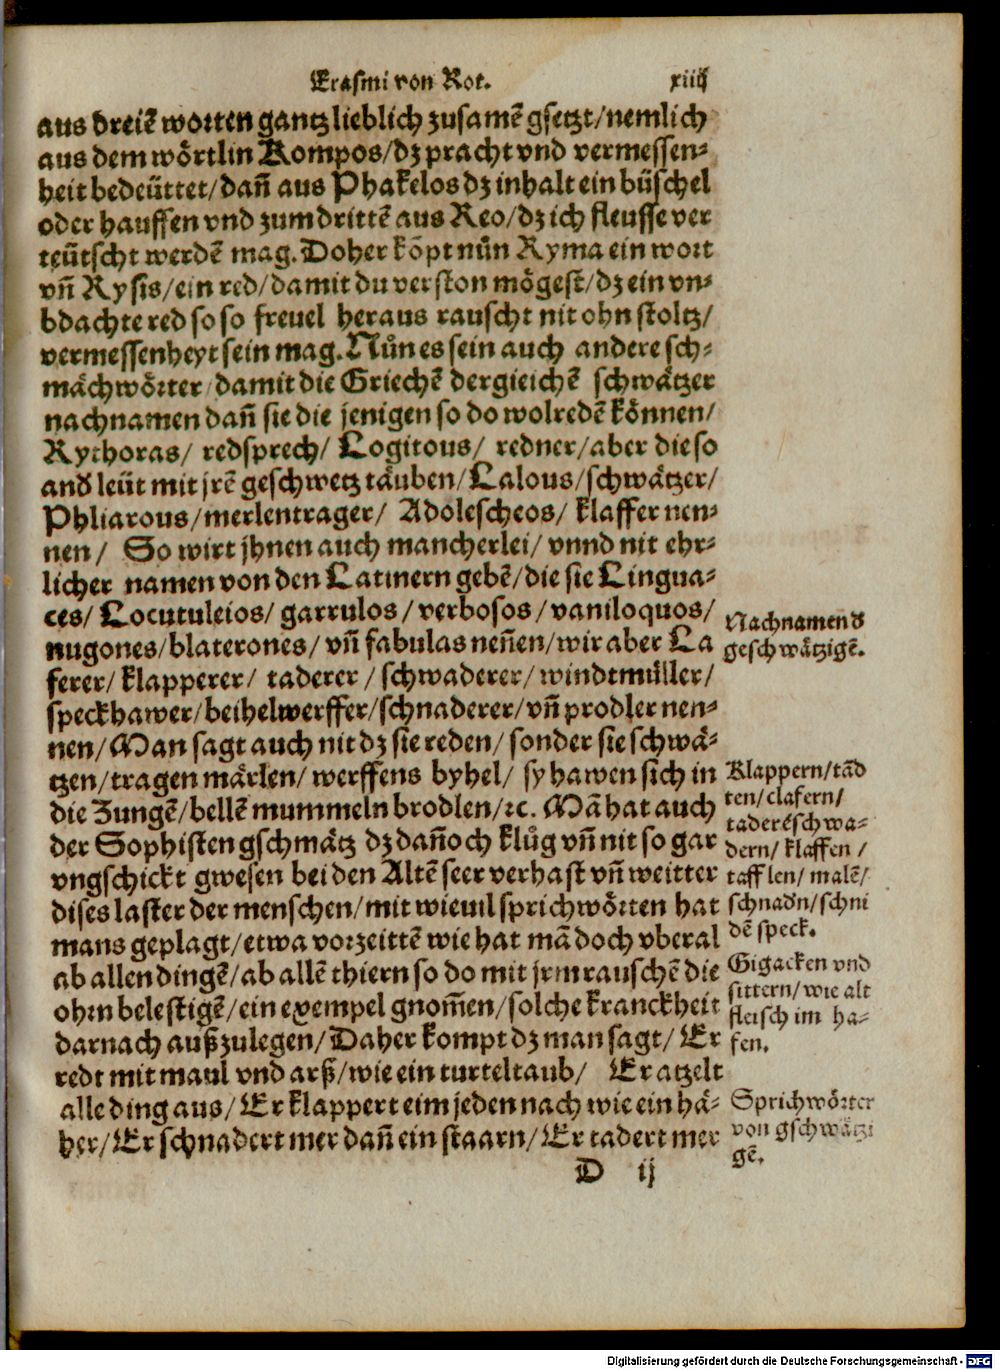 Erasmi von Rot. xiiij
aus dreiẽ worten gantz lieblich zusamẽ gsetzt/nemlich
aus dem wörtlin Kompos/dz pracht vnd vermessen-
heit bedeüttet/dañ aus Phakelos dz inhalt ein büschel
oder hauffen vnd zum drittẽ aus Reo/dz ich fleusse ver
teütscht werdẽ mag. Doher kõpt nůn Ryma ein wort
vñ Rysis/ein red/damit du verston mögest/dz ein vn-
bdachte red so so frevel heraus rauscht nit ohn stoltz/
vermessenheyt sein mag. Nůn es sein auch andere sch-
mächwörter/damit die Griechẽ dergleichẽ schwätzer
nachnamen dañ sie die jenigen so do wolredẽ können/
Rythoras/ redsprech/ Logitous/ redner/aber die so
and leüt mit jrẽ geschwetz täuben/Lalous/schwätzer/
Phliarous/merlentrager/ Adolescheos/ klaffer nen-
nen/ So wirt jhnen auch mancherlei/ vnnd nit ehr-
licher namen von den Latinern gebẽ/die sie Lingua-
ces/ Locutuleios/ garrulos/verbosos/vaniloquos/
nugones/blaterones/vñ fabulas neñen/wir aber La
ferer/klapperer/ taderer/schwaderer/windtmüller/
speckhawer/beihelwerffer/schnaderer/vñ prodler nen-
nen/Man sagt auch nit dz sie reden/sonder sie schwä-
tzen/tragen märlen/werffens byhel/ sy hawen sich in
die Zungẽ/bellẽ mummeln brodlen/ꝛc. Mã hat auch
der Sophisten gschmätz dz dañoch klůg vñ nit so gar
vngschickt gwesen bei den Altẽ seer verhast vñ weitter
dises laster der menschen/mit wieuil sprichwörten hat
mans geplagt/etwa vorzeittẽ wie hat mã doch vberal
ab allen dingẽ/ab allẽ thiern so do mit jrm rauschẽ die
ohrn belestigẽ/ein exempel gnom̃en/solche kranckheit
darnach außzulegen/Daher kompt dz man sagt/ Er
redt mit maul vnd arß/wie ein turteltaub/ Er atzelt
alle ding aus/Er klappert eim jeden nach wie ein hä-
her/Er schnadert mer dañ ein staarn/Er tadert mer
D ij
Nachnamen d
geschwätzigẽ.
Klappern/tãd
ten/clafern/
taderẽ schwa-
dern/klaffen/
tafflen/malẽ/
schnadn/schni
dẽ speck.
Gigacken vnd
sittern/wie alt
fleisch im ha-
fen.
Sprichwörter
von gschwätzi
gẽ.
Digitalisierung gefördert durch die Deutsche Forschungsgemeinschaft - DFG